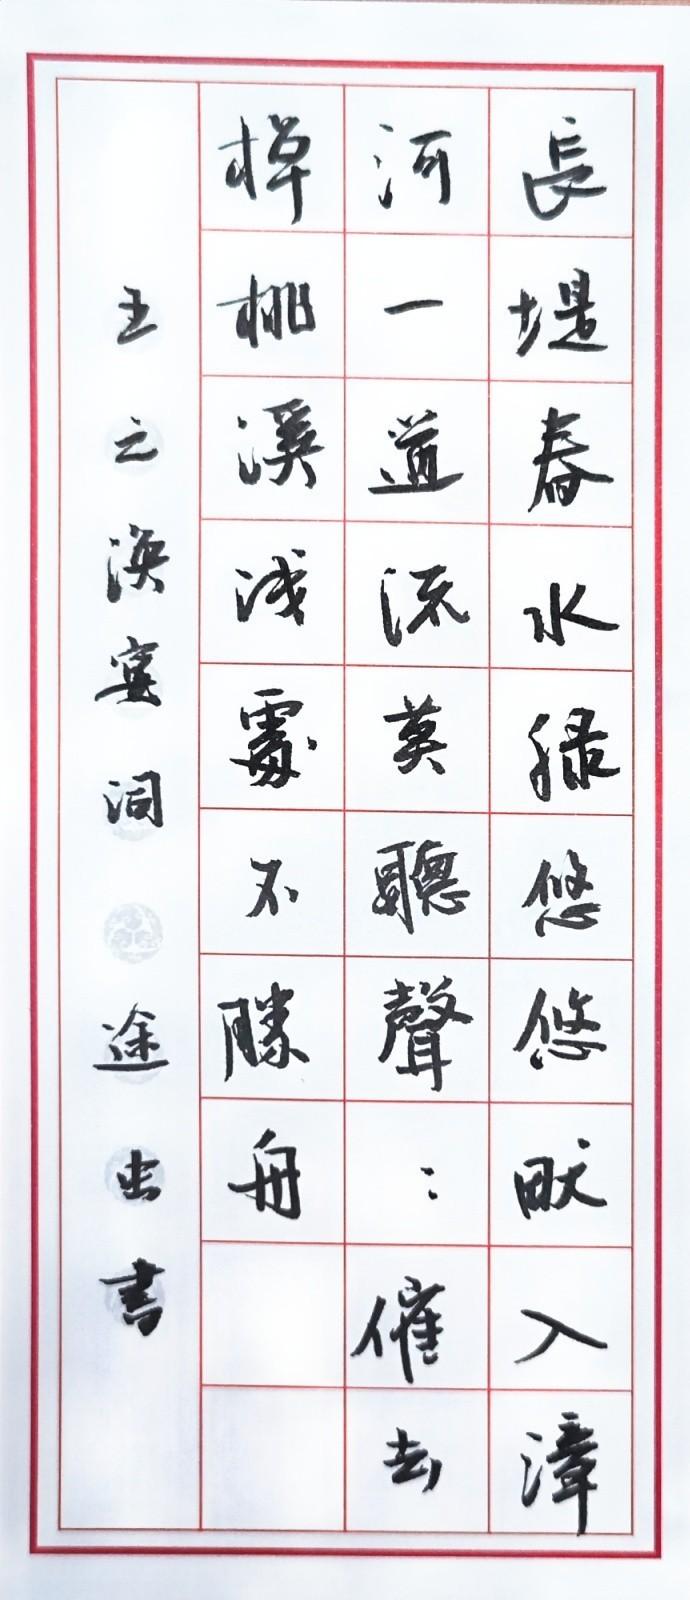 長堤春水緑悠悠畎入漳
河一道流莫聽聲：催去
棹桃溪浅處不勝舟
王之渙宴词 途虫書